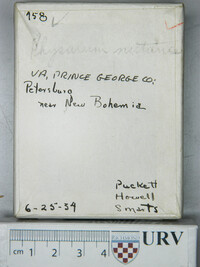 158
VA, PRINCE GEORGE CO;
Petersburg
near New Bohemia
6-25-54
Puckett
Howell
Smarts
cm 1 2 3 4
URV